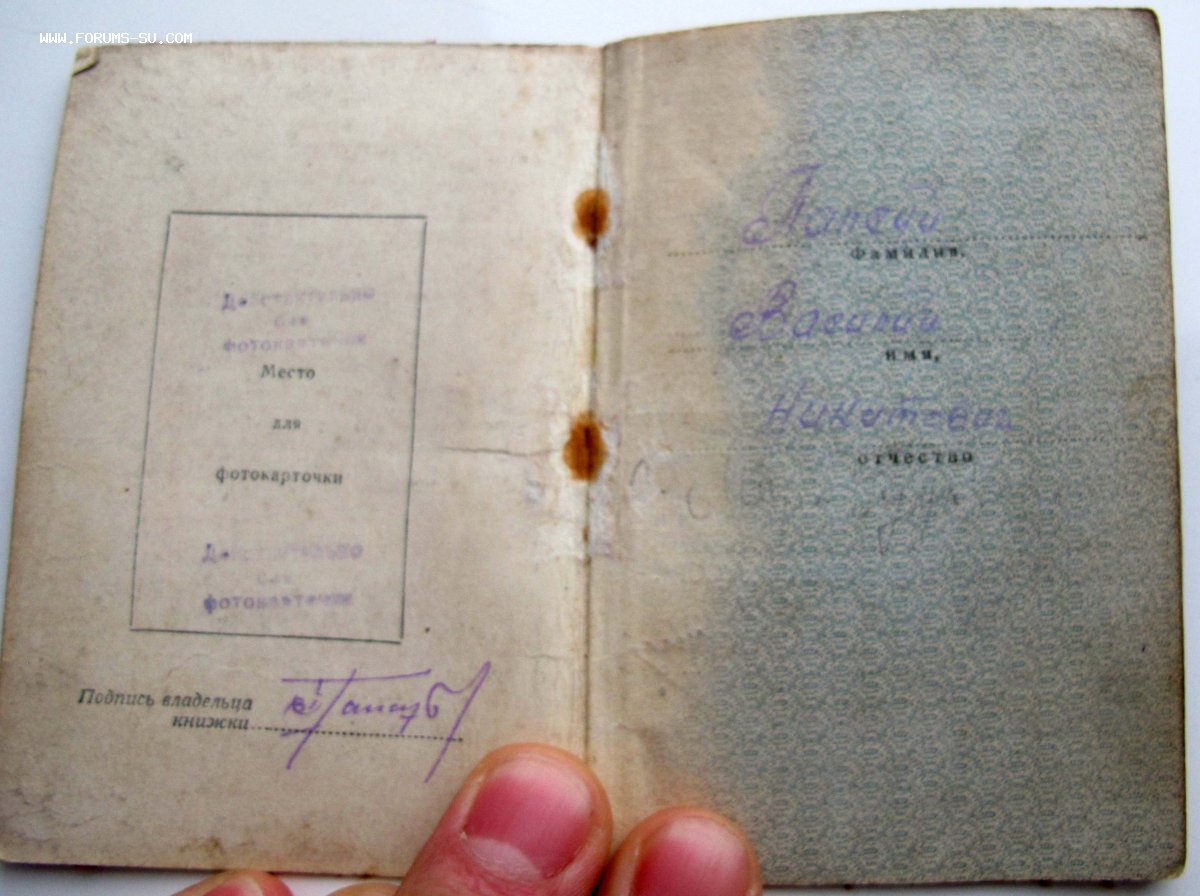 WWW.FORUMS-SU.COM
Действительно
без
фотокарточки
Место
для
фотокарточки
Действительно
без
фотокарточки
Подпись владельца
книжки
фамилия,
Василий
имя,
Никитович
отчество